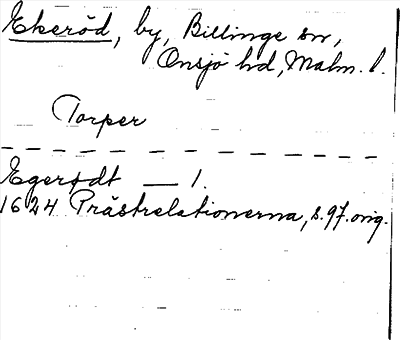 Ekeröd, by, Billinge sn,
Onsjö hd, Malm. l.
Torper
Egerødt — 1.
1624 Prästrelationerna, s. 97. orig.